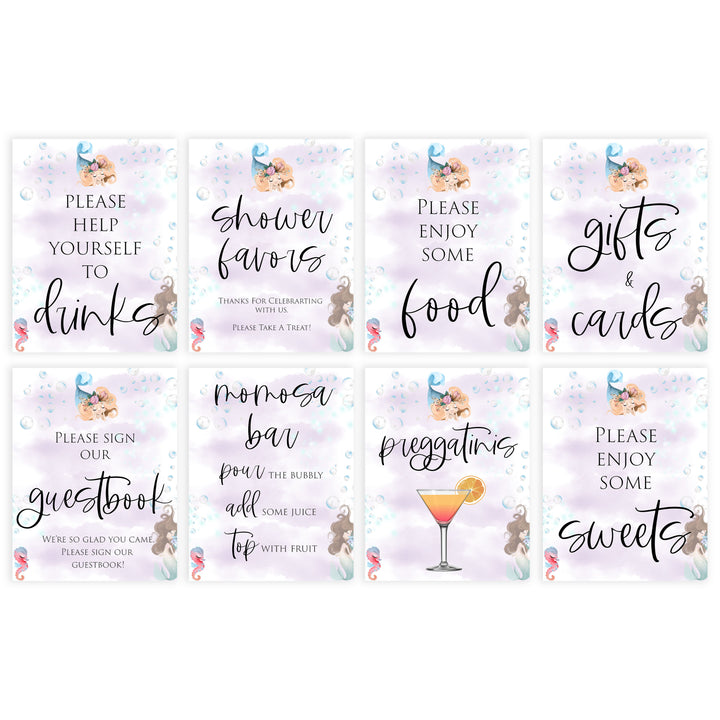 PLEASE
HELP
YOURSELF
TO
drinks
shower
favors
THANKS FOR CELEBRARTING
WITH US.
PLEASE TAKE A TREAT!
PLEASE
ENJOY
SOME
food
gifts
&
cards
PLEASE SIGN
OUR
guestbook
WE'RE SO GLAD YOU CAME.
PLEASE SIGN OUR
GUESTBOOK!
momosa
bar
pour THE BUBBLY
add SOME JUICE
top WITH FRUIT
preggatinis
PLEASE
ENJOY
SOME
sweets